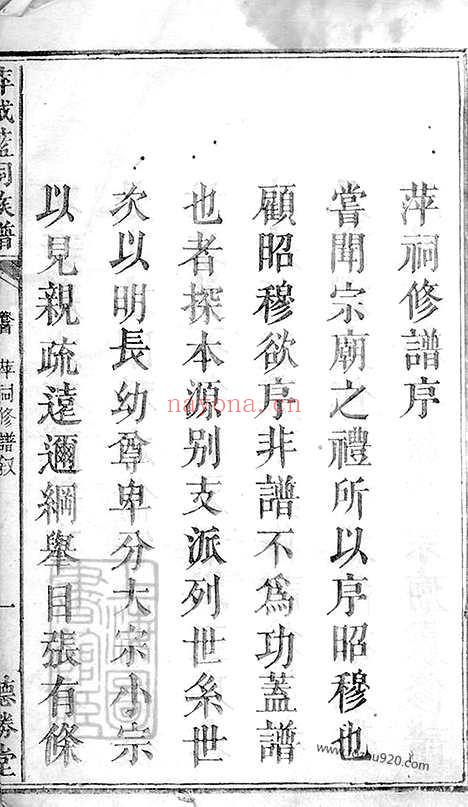 萍祠修譜序
嘗聞宗廟之禮所以序昭穆也
顧昭穆欲序非譜不為功蓋譜
也者探本源別支派列世系世
次以明長幼尊卑分大宗小宗
以見親疏遠邇綱舉目張有條
萍城藍祠族譜
舊 萍祠修譜敘
一
德勝堂
nayona.cn